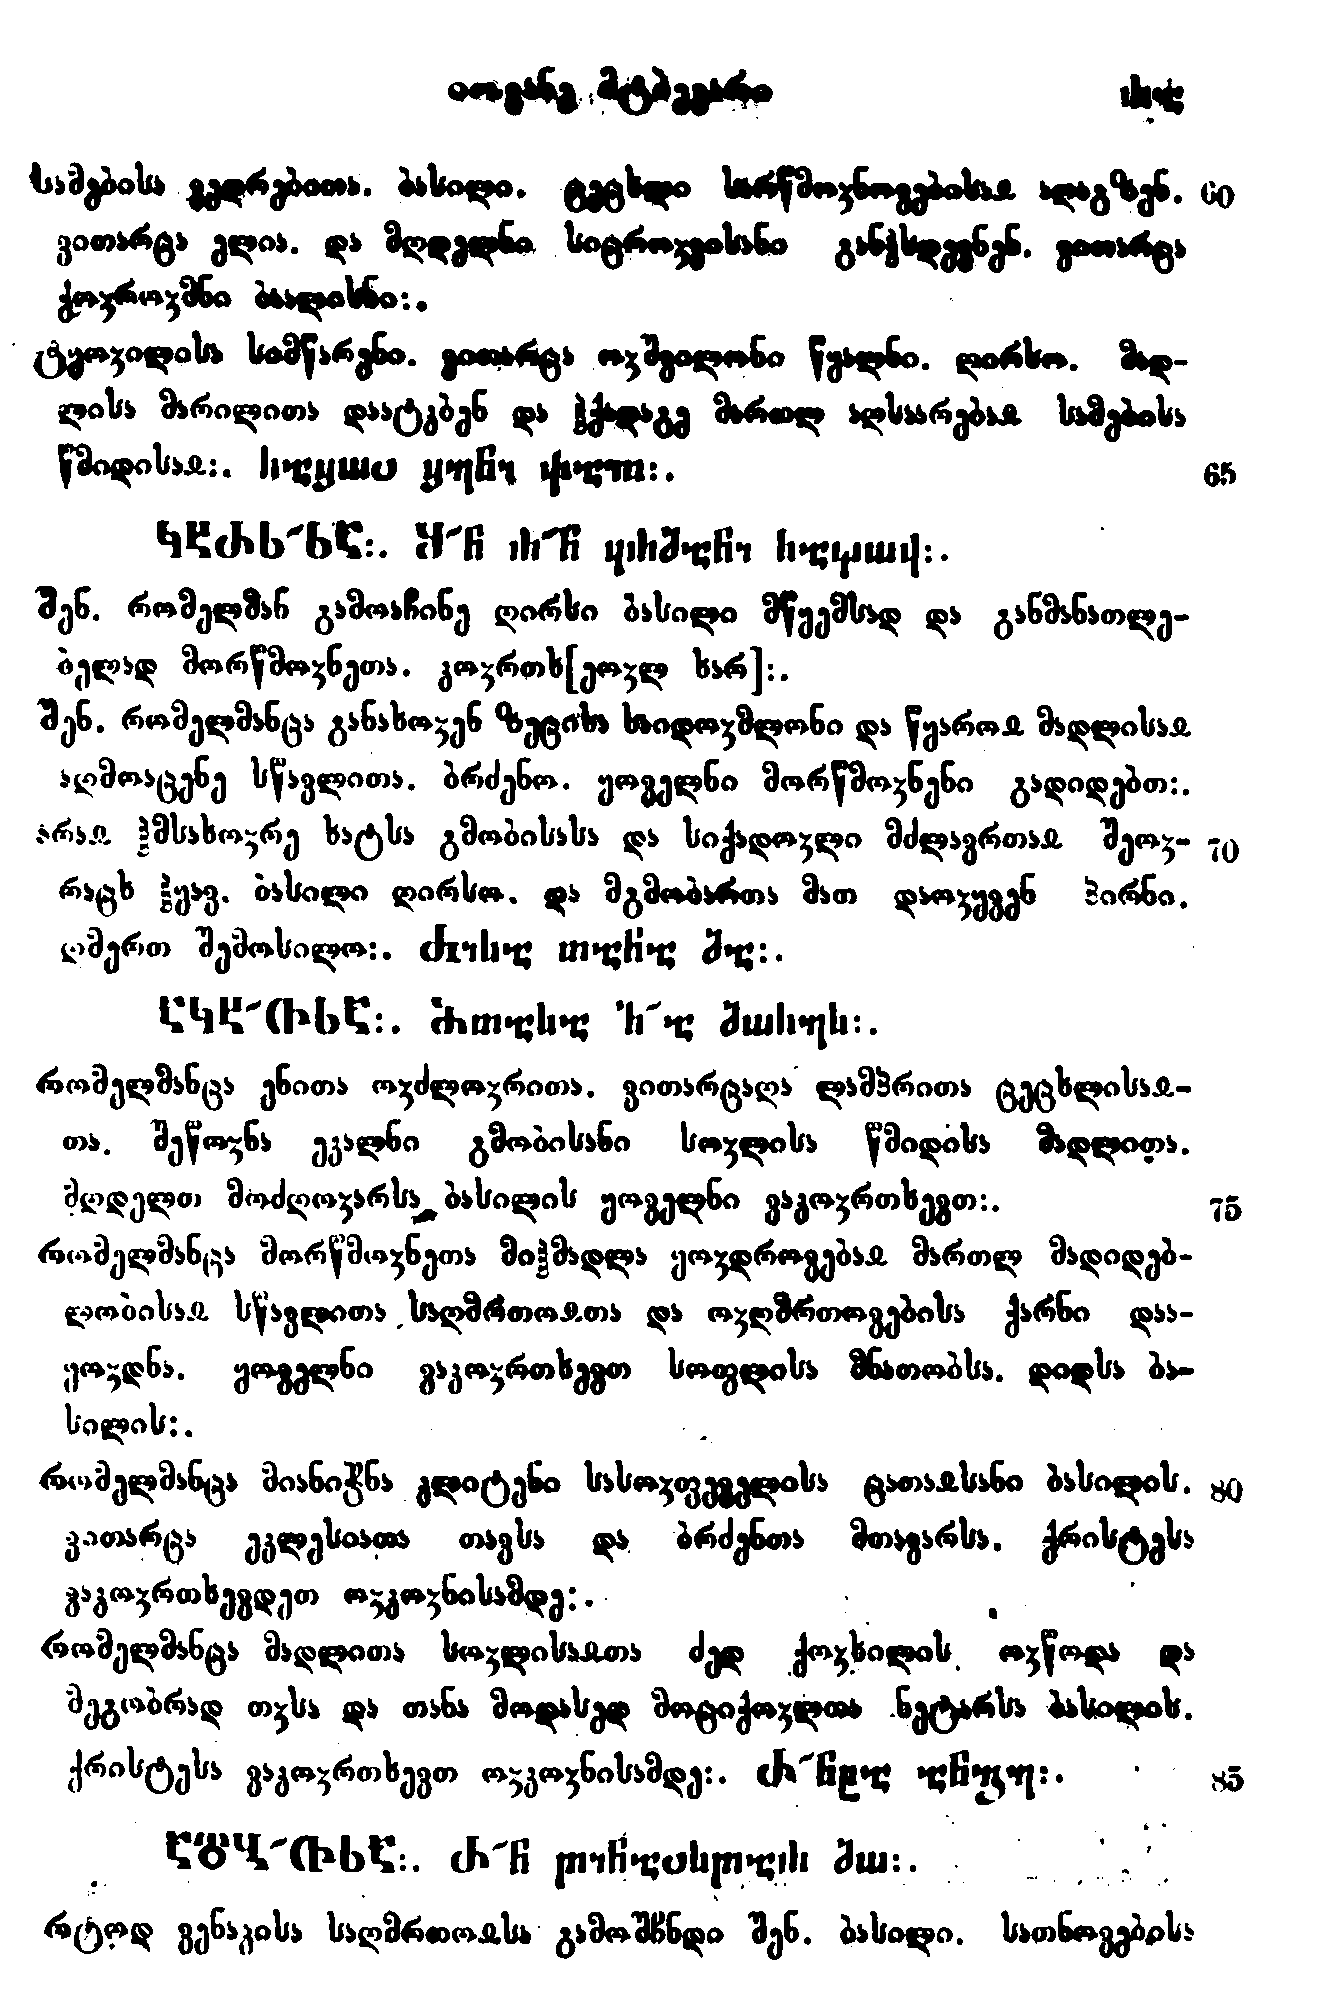 იოვანე მტბევარი
სამებისა ვედრებითა. ბასილი. ცეცხლი სარწმოჳნოვებისაჲ აღაგზენ. 60
ვითარცა ელია. და მღდელნი სიცროჳვისანი განჰსდევნენ. ვითარცა
ქოჳროჳმნი ბაალისნი:.
ტყოჳილისა სიმწარენი. ვითარცა ოჳშჳილონი წყალნი. ღირსო. მად-
ლისა მარილითა დაატკბენ და ჰქადაგე მართლ აღსაარებაჲ სამებისა
წმიდისაჲ:. 65
შენ. რომელმან გამოაჩინე ღირსი ბასილი მწყემსად და განმანათლე-
ბელად მორწმოჳნეთა. კოჳრთხ[ეოჳლ ხარ]:.
შენ. რომელმანცა განახოჳენ ზეცისა საიდოჳმლონი და წყაროჲ მადლისაჲ
აღმოაცენე სწავლითა. ბრძენო. ყოველნი მორწმოჳნენი გადიდებთ:.
არაჲ ჰმსახოჳრე ხატსა გმობისასა და სიქადოჳლი მძლავრთაჲ შეოჳ- 70
რაცხ ჰყავ. ბასილი ღირსო. და მგმობართა მათ დაოჳყვენ პირნი.
ღმერთ შემოსილო:.
რომელმანცა ენითა ოჳძლოჳრითა. ვითარცაღა ლამპრითა ცეცხლისაჲ-
თა. შეწოჳნა ეკალნი გმობისანი სოჳლისა წმიდისა მადლითა.
მღდელთ მოძღოჳარსა ბასილის ყოველნი ვაკოჳრთხევთ:. 75
რომელმანცა მორწმოჳნეთა მიჰმადლა ყოჳდროვებაჲ მართლ მადიდებ-
ლობისაჲ სწავლითა საღმრთოჲთა და ოჳღმრთოვებისა ქარნი დაა-
ყოჳდნა. ყოველნი ვაკოჳრთხევთ სოფლისა მნათობსა. დიდსა ბა-
სილის:.
რომელმანცა მიანიჭნა კლიტენი სასოჳფეველისა ცათაჲსანი ბასილის. 80
ვითარცა ეკლესიათა თავსა და ბრძენთა მთავარსა. ქრისტესა
ვაკოჳრთხევდეთ ოჳკოჳნისამდე:.
რომელმანცა მადლითა სოჳლისაჲთა ძედ ქოჳხილის ოჳწოდა და
მეგობრად თჳსა და თანა მოდასედ მოციქოჳლთა ნეტარსა ბასილის.
ქრისტესა ვაკოჳრთხევთ ოჳკოჳნისამდე:. 85
რტოდ ვენაკისა საღმრთოჲსა გამოშჩნდი შენ. ბასილი. სათნოვებისა